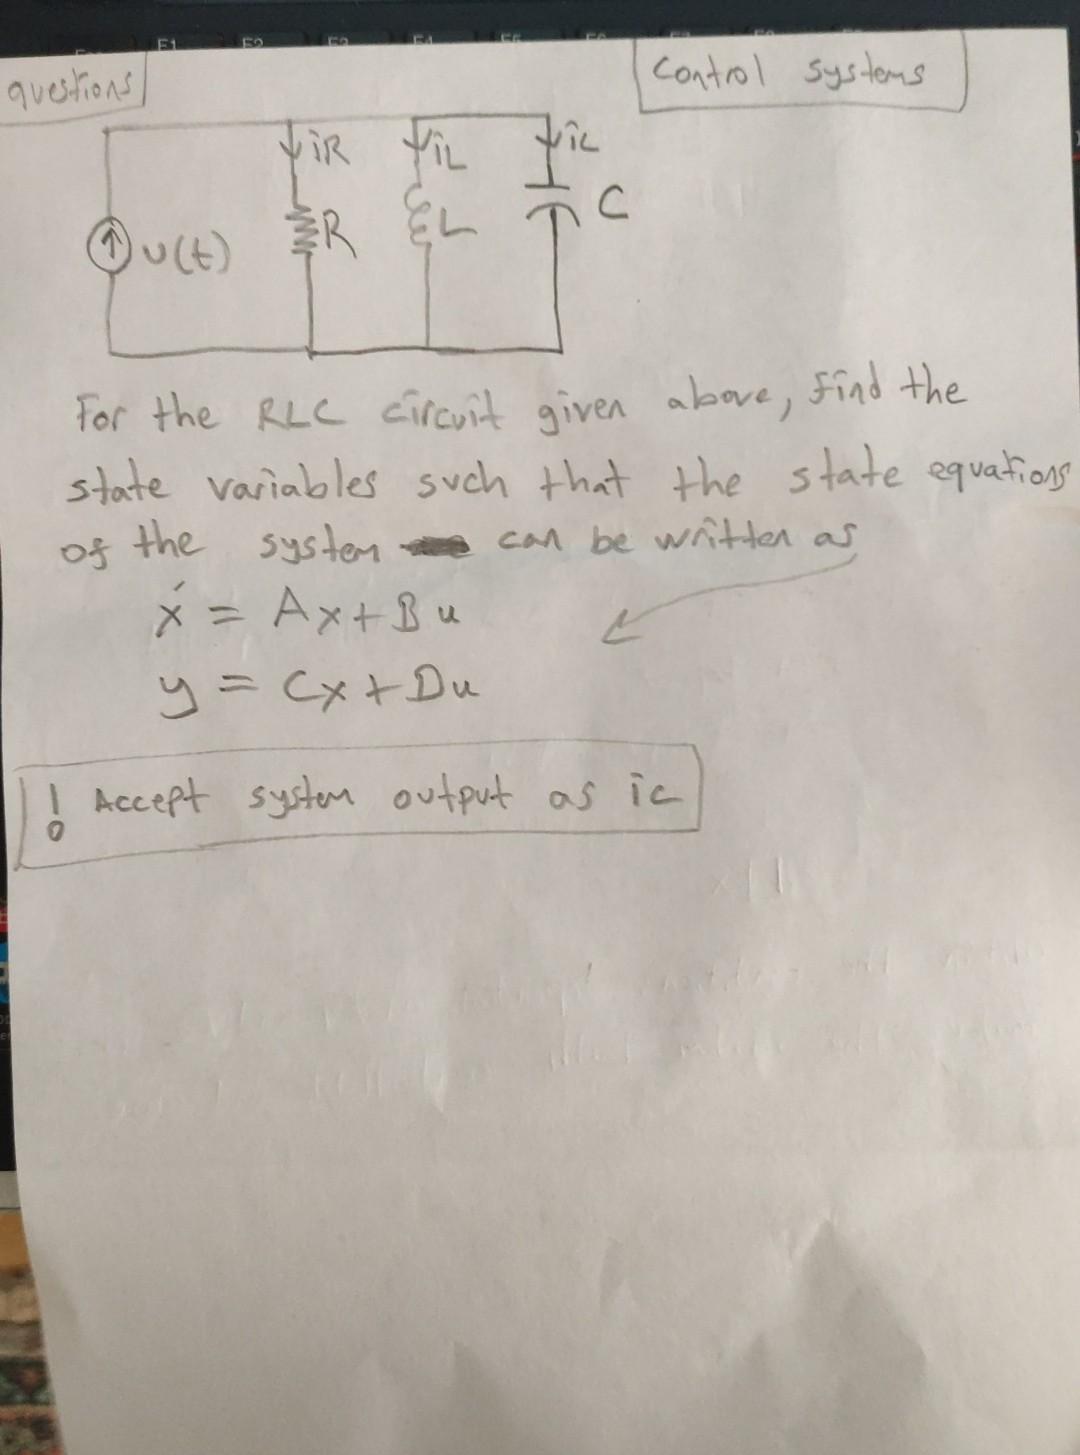 F1 F2 F3 F4 F5 F6
questions
Control systems
iR iL ic
u(t) R L C
For the RLC circuit given above, find the
state variables such that the state equations
of the system can be written as
ẋ = Ax + Bu
y = Cx + Du
! Accept system output as ic